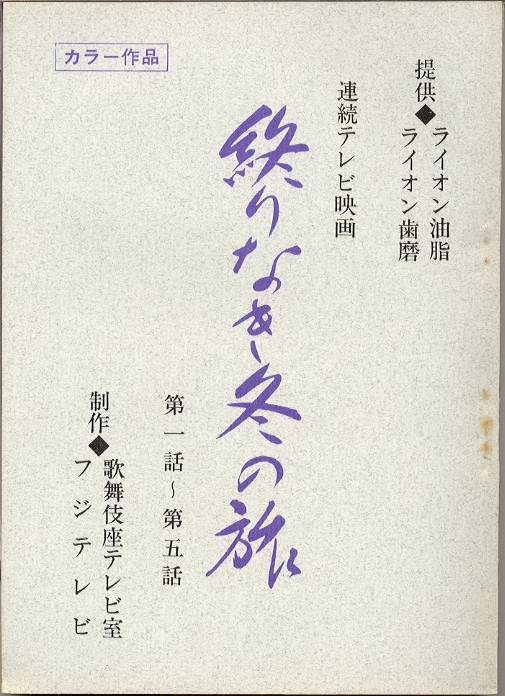 カラー作品
提供◆ライオン油脂
ライオン歯磨
連続テレビ映画
終りなき冬の旅
第一話～第五話
制作◆歌舞伎座テレビ室
フジテレビ